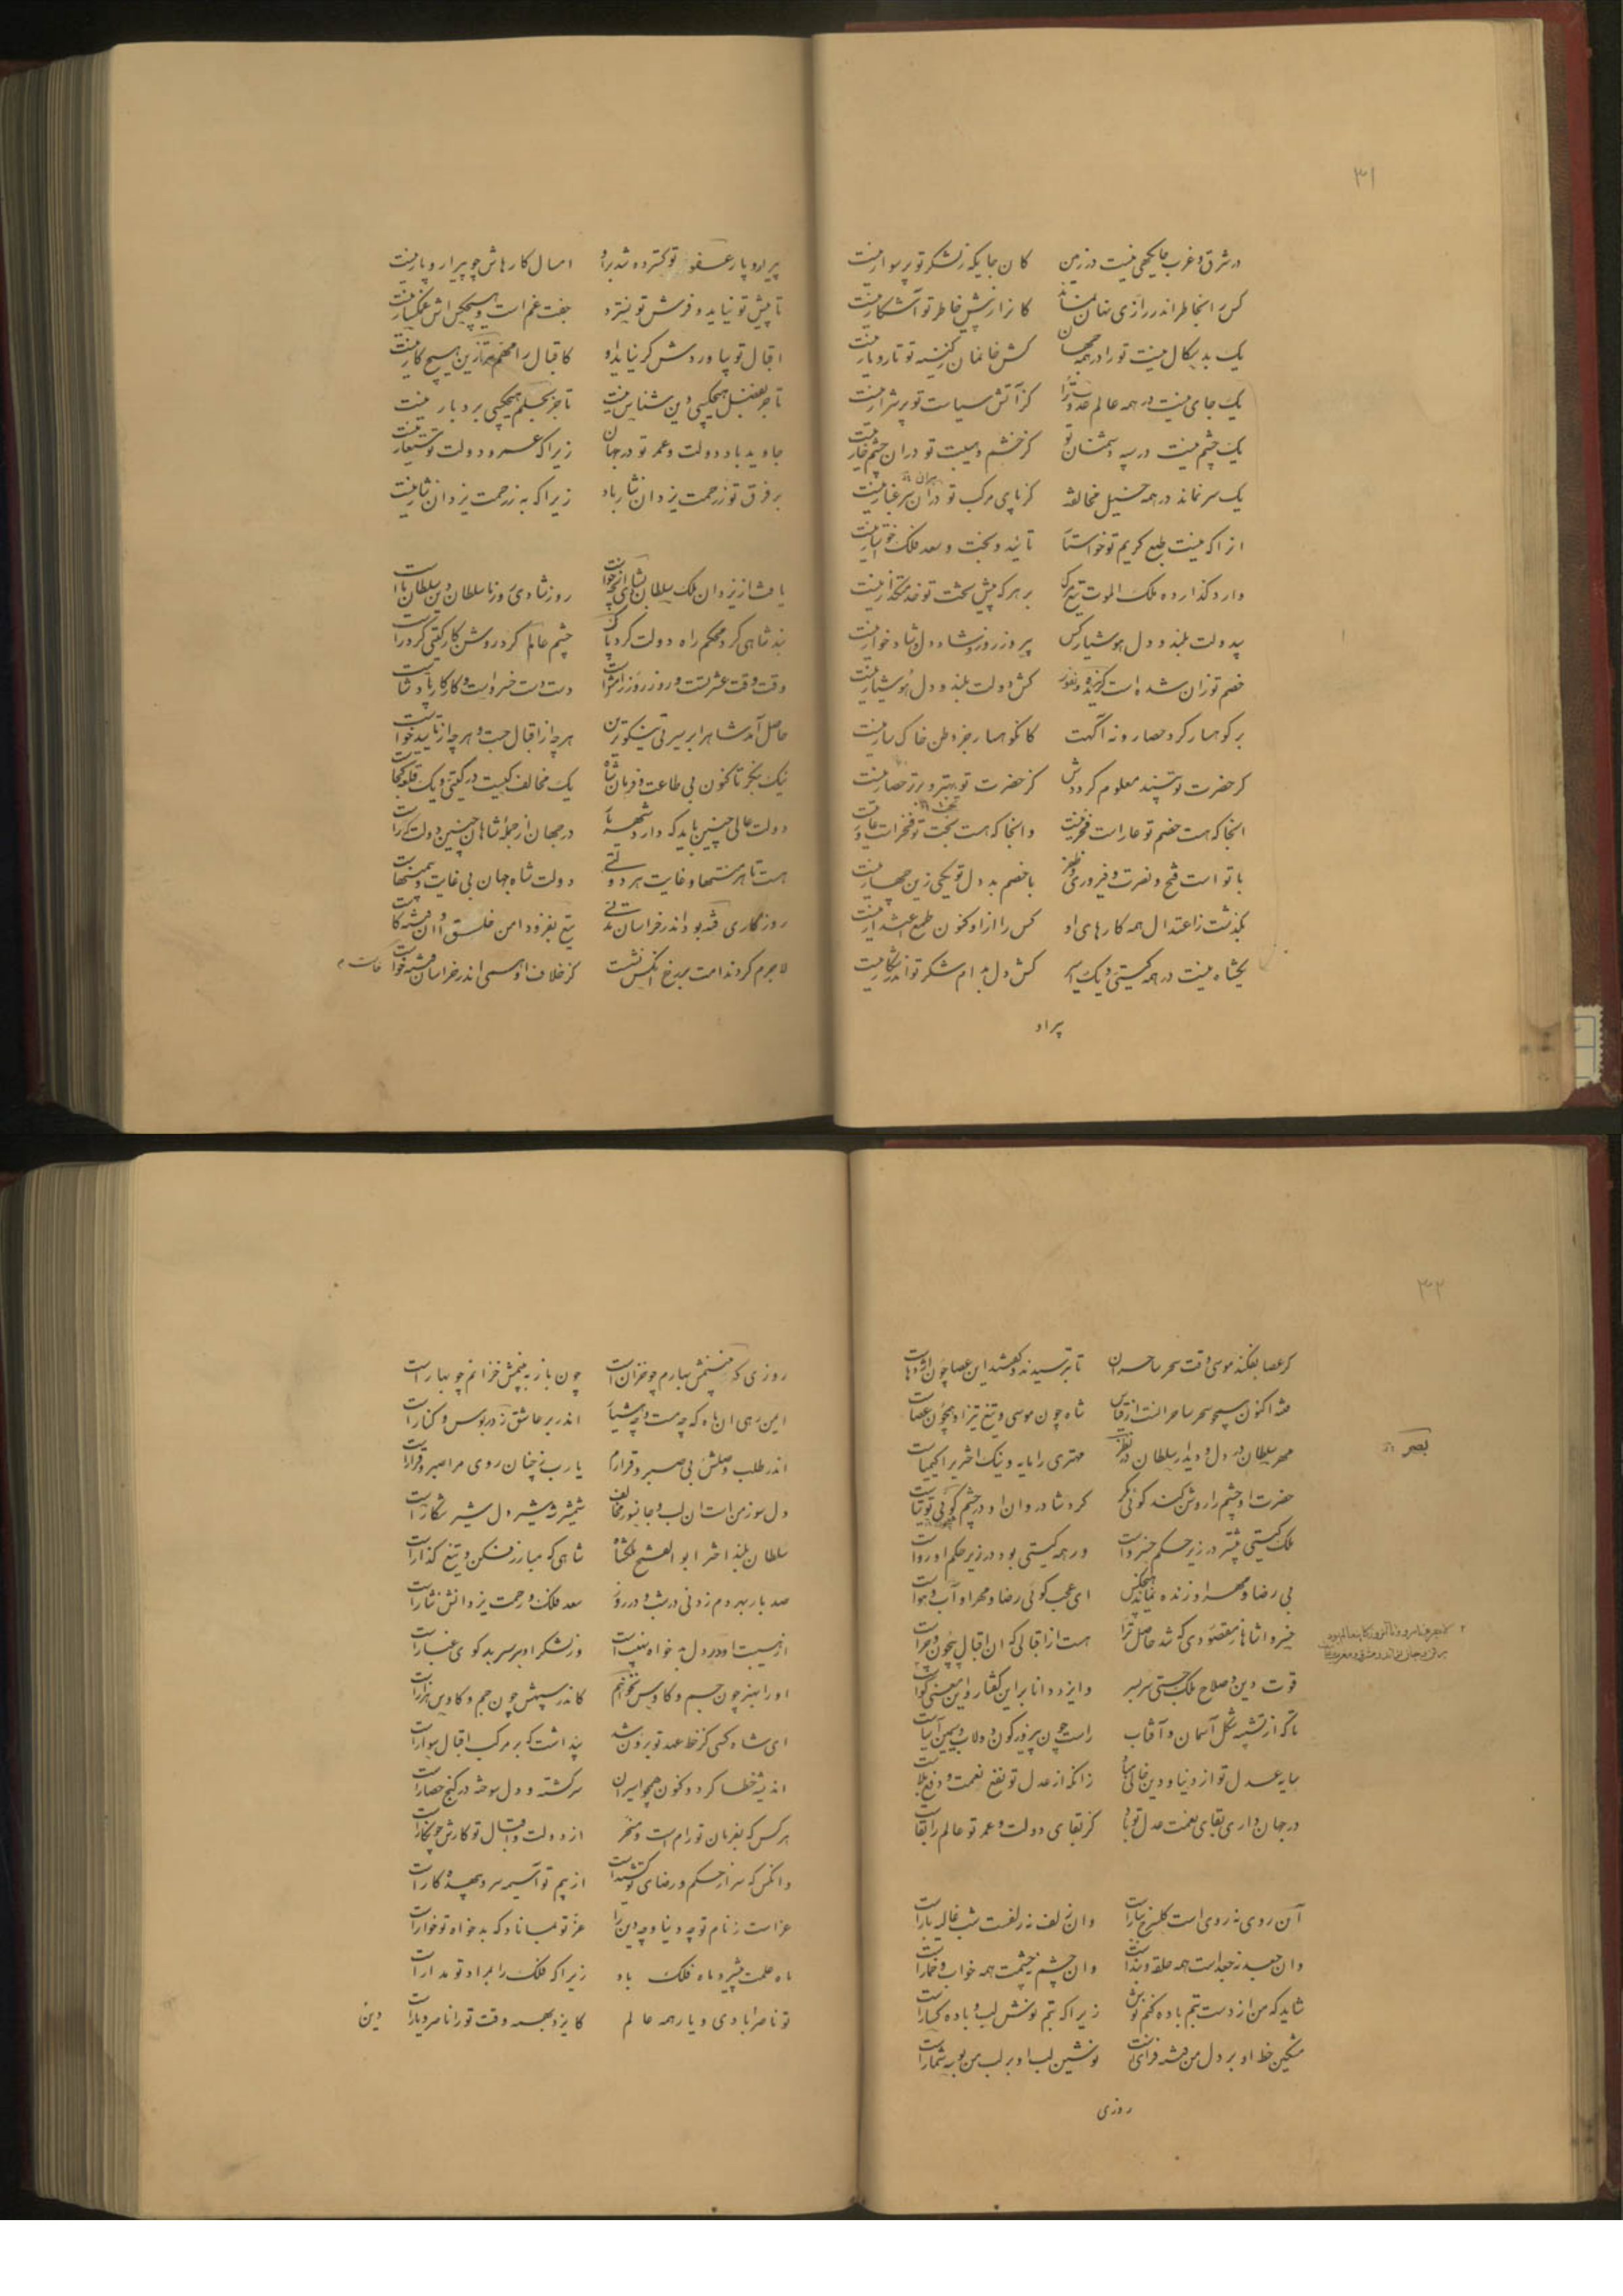 ۳۱
در شرق و غرب جایگهی نیست در زمین کان جایگه ز لشکر تو پر سوار نیست
کس را بخاطر اندر رازی نهان نماند کان راز پیش خاطر تو آشکار نیست
یک بد سگال نیست تو را در همه جهان کش خانمان ز کینه تو تار و مار نیست
یک جای نیست در همه عالم عدوت را کز آتش سیاست تو پر شرار نیست
یک چشم نیست در سپه دشمنان تو کز خشم و هیبت تو در آن چشم خار نیست
یک سر نماند در همه خیل مخالفان کز پای مرکب تو در آن سر غبار نیست
از آنکه نیست طبع کریم تو خواستار تائید و بخت و سعد فلک خواستار نیست
وارد گذارده ملک الموت تیغ مرگ بر هر که پیش تخت تو خدمتگذار نیست
بیدولت بلند و دل هوشیار کس پیروز روز و شاد دل و شادخوار نیست
خصم تو زان شده است گزیده و نفور کش دولت بلند و دل هوشیار نیست
بر کوهسار کرد حصار و نه آگهست کانکوهسار جز وطن خاکسار نیست
گر حضرت تو بیند معلوم گرددش کز حضرت تو بهتر و برتر حصار نیست
آنجا که هست خصم تو عار است فخر نیست وانجا که هست بخت تو فخر است عار نیست
با تو است فتح و نصرت و فیروزی و ظفر با خصم بد دل تو یکی زین چهار نیست
بگذشت ز اعتدال همه کارهای او کس را ازو کنون طمع اعتذار نیست
یکشاه نیست در همه گیتی و یک امیر کش دل بدام شکر تو اندر شکار نیست
پیرار
پیرار و پار عفو تو گسترده شد بر او امسال کارهاش چو پیرار و پار نیست
تا پیش تو نیاید و فرش تو نسپرد جفت غم است و هیچکس اش غمگسار نیست
اقبال تو بیاوردش گر نیاید او کاقبال را مهم‌تر ازین هیچ کار نیست
تا جز بفضل هیچکسی دین شناس نیست تا جز بحلم هیچکسی بردبار نیست
جاوید باد دولت و عمر تو در جهان زیرا که عمر و دولت تو مستعار نیست
بر فرق تو ز رحمت یزدان نثار باد زیرا که به ز رحمت یزدان نثار نیست
یافت از یزدان ملک سلطان بشادی آنچه خواست روز شادی روز ما سلطان دین سلطان ماست
بند شاهی کرد محکم راه دولت کرد پاک چشم عالم کرد روشن کار گیتی کرد راست
وقت وقت عشرتست و روز روز رامش است دست دست خسرو است و کار کار پادشاست
حاصل آمد شاه را بر سیرتی نیکوترین هر چه از اقبال جست و هر چه از تایید خواست
نیک بنگر تا کنون بی طاعت و فرمان شاه یک مخالف کیست در گیتی و یک قلعه کجاست
دولت عالی چنین باید که دارد شهریار در جهان از جمله شاهان چنین دولت کراست
هست تا هر منتها و غایت هر دولتی دولت شاه جهان بی غایت و بی منتهاست
روزگاری فتنه بود اندر خراسان مدتی تیغ بفزود امن خلق و آن فتنه کاست
لاجرم کردند امت بر رخ آنکس نشست کز خلاف او همی اندر خراسان فتنه خواست
۳۲
گر عصا بفکند موسی وقت سحر ساحران تا بترسیدند و گفتند این عصا چون اژدهاست
فتنه اکنون همچو سحر ساحرانست از قیاس شاه چون موسی و تیغ تیز او همچون عصاست
بصر
مهر سلطان در دل و دیدار سلطان در نظر مهتری را مایه و نیک اختری را کیمیاست
حضرت او چشم را روشن کند گوئی مگر گرد شادروان او در چشم گوئی توتیاست
ملک گیتی بیشتر در زیر حکم خسرو است ور همه گیتی بود در زیر حکم او رواست
بی رضا و مهر او زنده نماند هیچکس ای عجب گوئی رضا و مهر او آب و هواست
خسروا شاها ز مقصودی که شد حاصل ترا هست از اقبالی که آن اقبال بیچون و چراست
قوت دین و صلاح ملک جستی سر بسر وایزد دانا بر این گفتار و این معنی گواست
تا که از تشبیه شکل آسمان و آفتاب راست چون پیروزه گون دولاب و سیمین آسیاست
سایه عدل تو از دنیا و دین خالی مباد زانکه از عدل تو نفع نعمت و دفع بلاست
در جهانداری بقای نعمت عدل تو باد کز بقای دولت و عمر تو عالم را بقاست
آن روی نه روی است گل سرخ ببار است وان زلف نه زلفست شب غالیه بار است
وان جعد نه جعد است همه حلقه و بند است وان چشم نه چشمست همه خواب و خمار است
شاید که من از دست بتم باده کنم نوش زیرا که بتم نوش لب و باده گسار است
مشکین خط او بر دل من فتنه فزای است نوشین لب او بر لب من بوسه شمار است
روزی
روزی که نبینمش بهارم چو خزان است چون باز ببینمش خزانم چو بهار است
این رهی آن ماه که چه مست و چه هشیار اندر بر عاشق ز در بوس و کنار است
اندر طلب وصلش بی صبر و قرارم یا رب ز چنان روی مرا صبر و قرار است
دل سوز من است آن لب و جانسوز مخالف شمشیر شه شیر دل شیر شکار است
سلطان بلند اختر ابوالفتح ملکشاه شاهی که مبارز فکن و تیغ گذار است
صد بار بهر دم زدنی در شب و در روز سعد فلک و رحمت یزدانش نثار است
از هیبت او در دل بدخواه نهیب است وز لشکر او بر سر بدگوی غبار است
او را بهنر چون جم و کاوس نخوانم کاندر سپهش چون جم و کاوس هزار است
ای شاه کسی کز خط عهد تو برون شد پنداشت که بر مرکب اقبال سوار است
اندیشه خطا کرد و کنون همچو اسیران سرگشته و دل سوخته در کنج حصار است
هر کس که بفرمان تو رام است و مسخر از دولت و اقبال تو کارش چو نگار است
وانکس که سر از حکم و رضای تو کشیده است از بیم تو آسیمه سر و بیهده کار است
عز است ز نام تو چه دنیا و چه دین را عز تو بماناد که بدخواه تو خوار است
ماه علمت میر و ماه فلک باد زیرا که فلک را بمراد تو مدار است
تو ناصر آبادی و یار همه عالم کایزد بهمه وقت تو را ناصر و یار است
دین